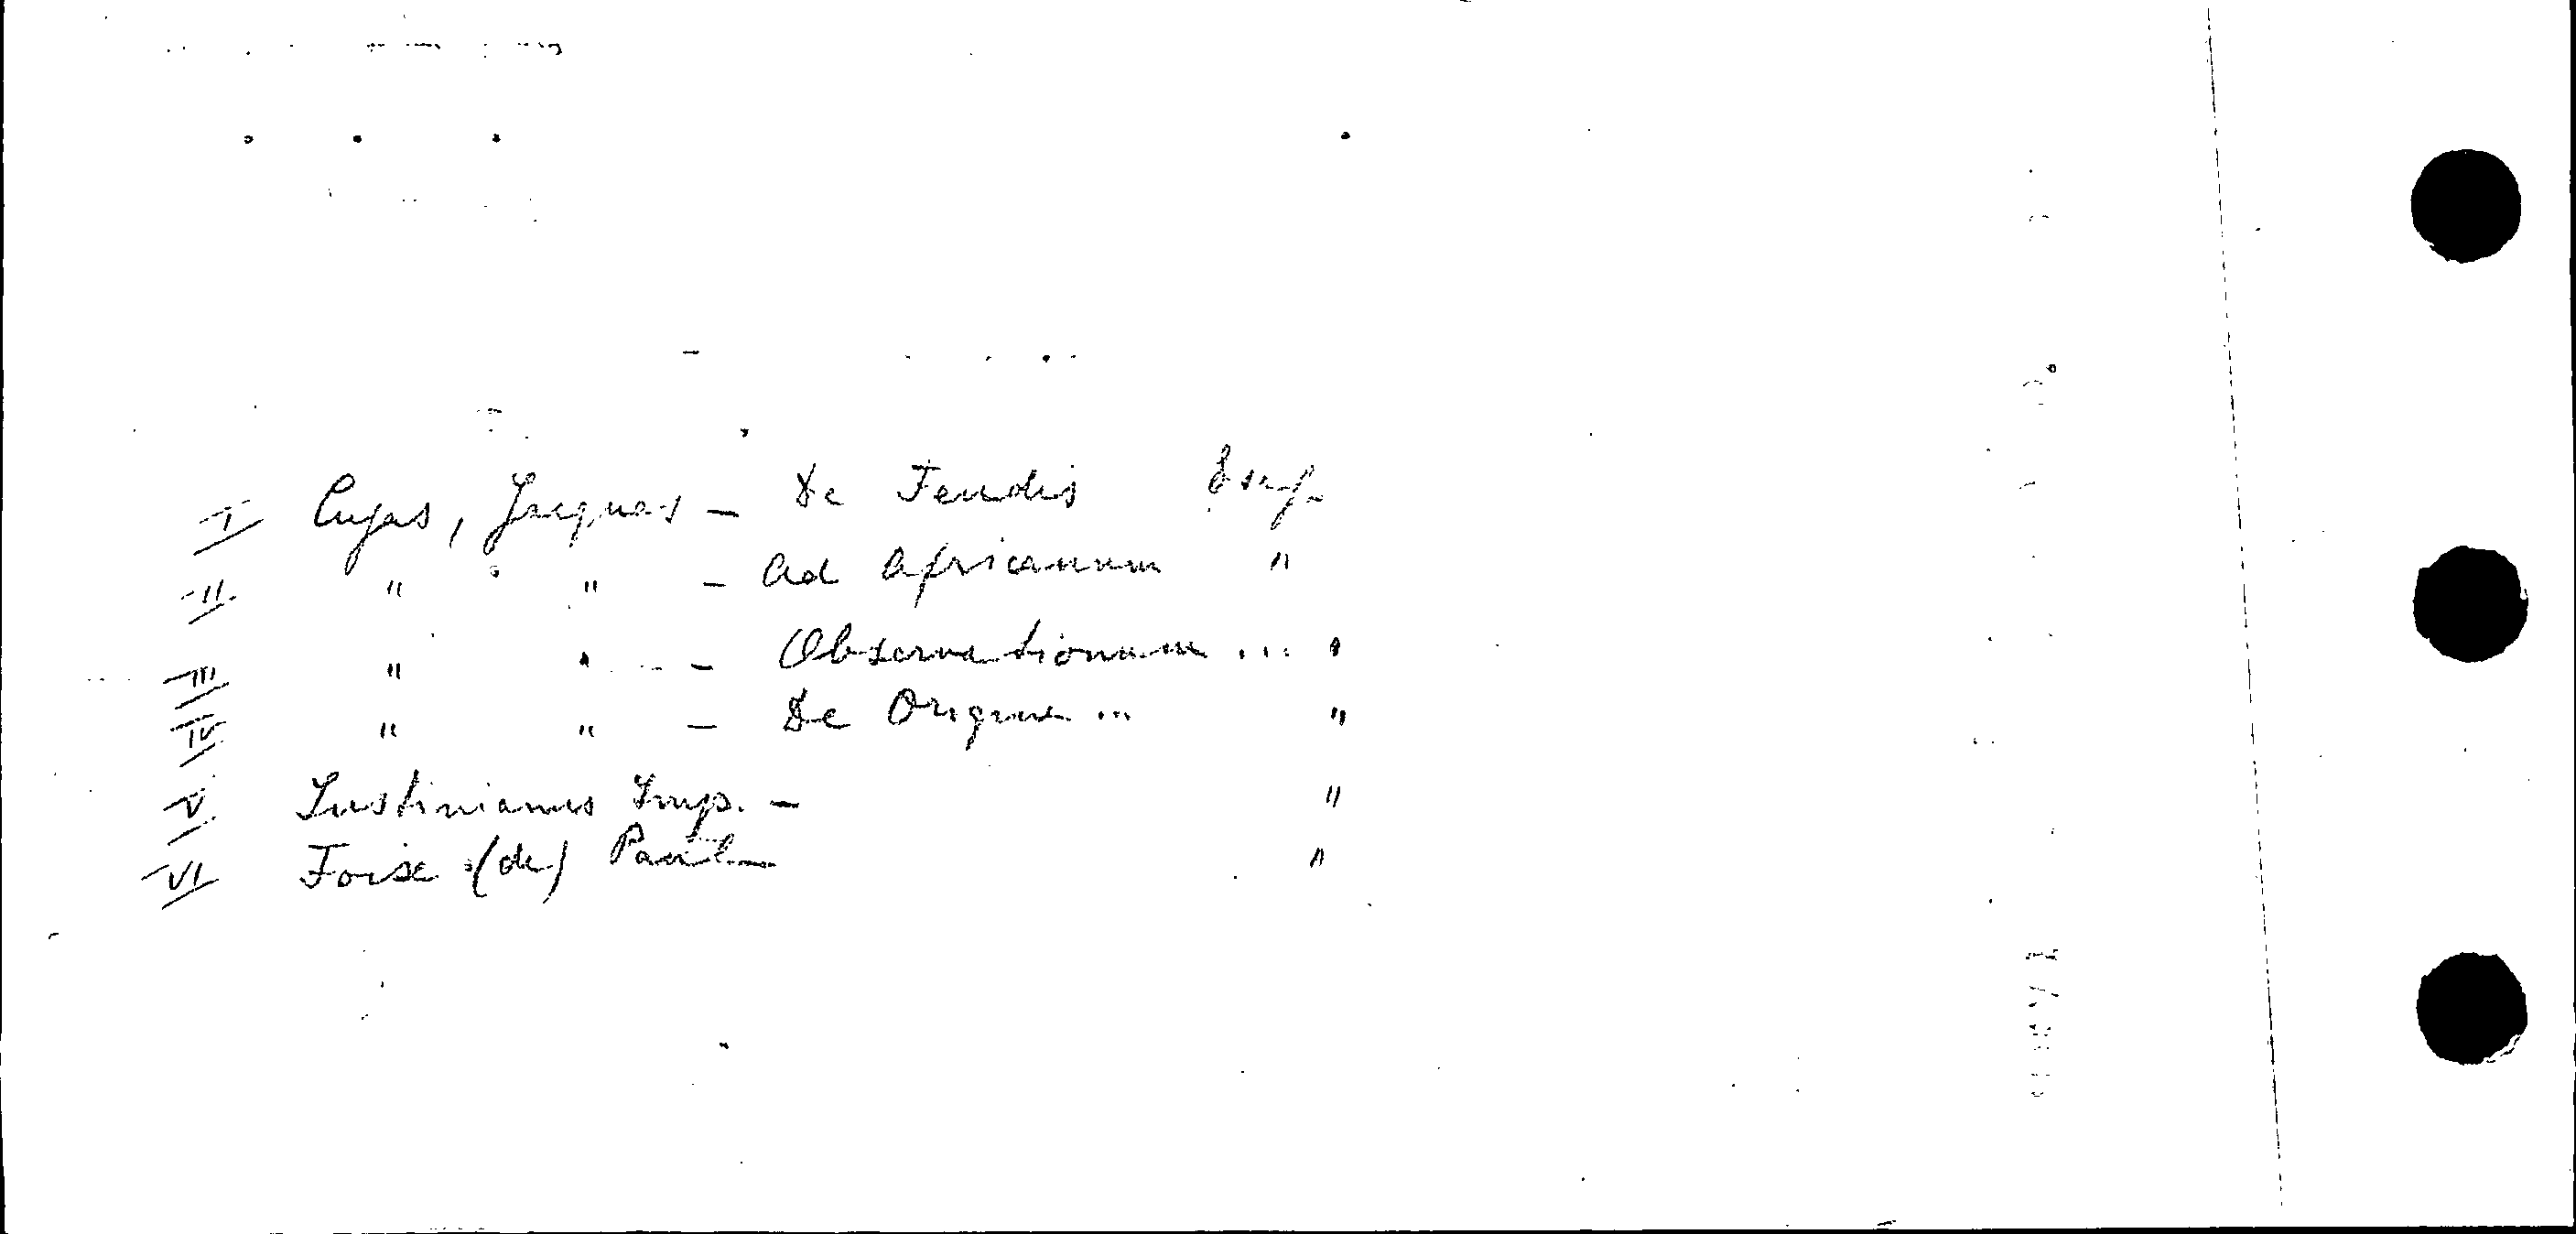 I Cujas, Jacques - De Feudis
II " " - Ad Africanum "
III " " - Observationum ... "
IV " " - De Origine ... "
V Iustinianus Imp. - "
VI Foix (de) Paul - "